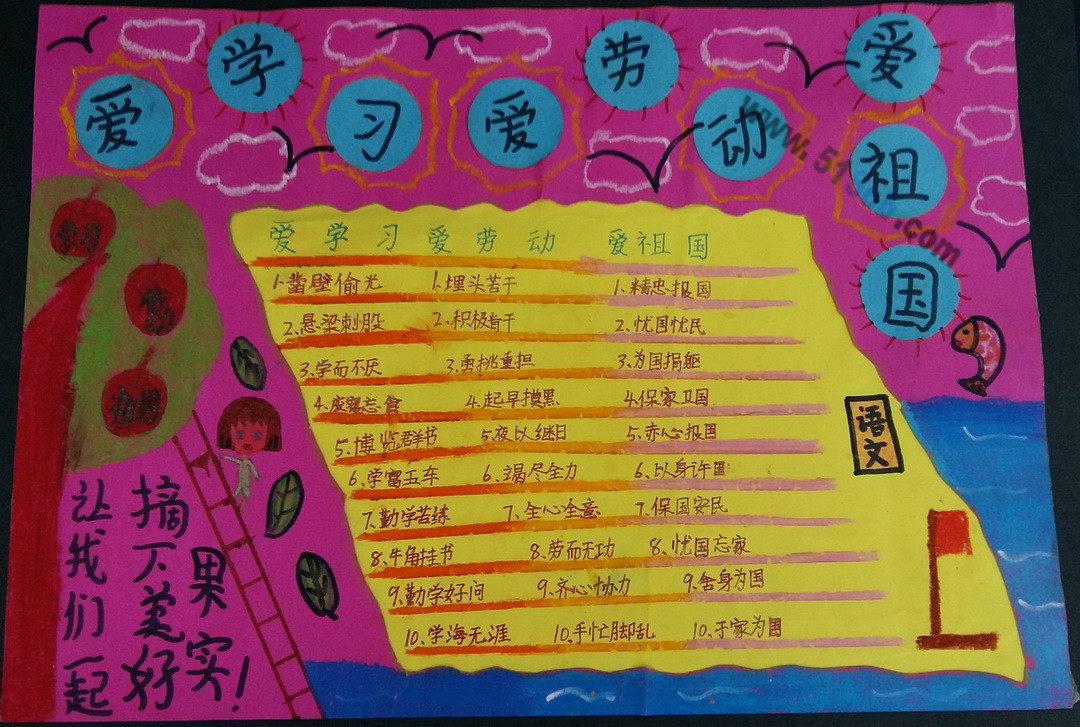 爱学习爱劳动爱祖国
学习
劳动
祖国
爱学习 爱劳动 爱祖国
1.凿壁偷光 1.埋头苦干 1.精忠报国
2.悬梁刺股 2.积极肯干 2.忧国忧民
3.学而不厌 3.勇挑重担 3.为国捐躯
4.废寝忘食 4.起早摸黑 4.保家卫国
5.博览群书 5.夜以继日 5.赤心报国
6.学富五车 6.竭尽全力 6.以身许国
7.勤学苦练 7.全心全意 7.保国安民
8.牛角挂书 8.劳而无功 8.忧国忘家
9.勤学好问 9.齐心协力 9.舍身为国
10.学海无涯 10.手忙脚乱 10.于家为国
语文
让我们一起
摘下美好
果实！